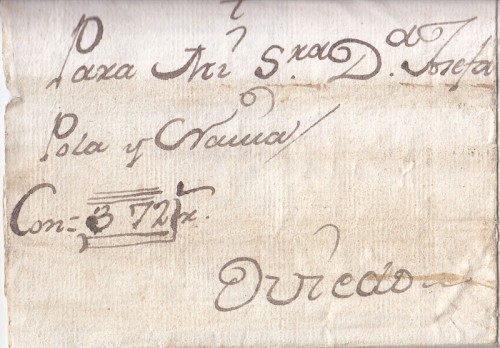 Para Mi S.ra D.a Josefa
Pola y Navia
Con = 372 r.
Oviedo